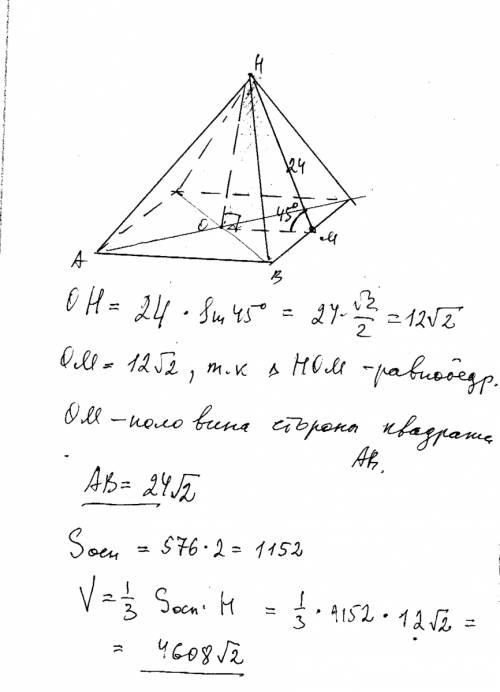 H
24
O
45°
M
A
B
OH = 24 · sin 45° = 24 · √2/2 = 12√2
OM = 12√2, т.к Δ HOM - равнобедр.
OM - половина стороны квадрата
AB.
AB = 24√2
Sосн = 576 · 2 = 1152
V = 1/3 Sосн · H = 1/3 · 1152 · 12√2 =
= 4608√2